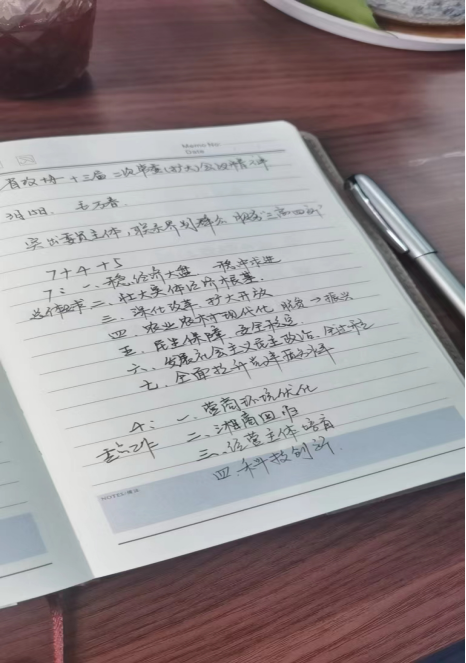 Memo No.
Date
省政协十三届二次常委(扩大)会议精神
3月1日.
突出委员主体, 联系界别群众 服务"三高四新"
7+4+5
7: 一、稳经济大盘 稳中求进
总体要求 二、壮大实体经济根基.
三、深化改革. 扩大开放
四、农业农村现代化. 脱贫→振兴
五、民生保障, 安全稳定
六、发展社会主义民主政治.
七、全面提升
4: 一、营商环境优化
重点工作 二、湘商回归
三、经营主体培育
四.科技创新.
NOTES/